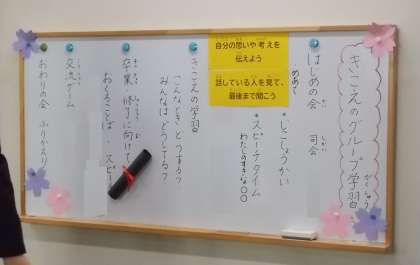 きこえのグループ学習
がくしゅう
はじめの会 司会
かい しかい
めあて
自分の思いや考えを
伝えよう
話している人を見て、
最後まで聞こう
*じこしょうかい
*スピーチタイム
わたしのすきな〇〇
きこえの学習
こんなとき どうする?
みんなは どうしてる?
卒業・修了に向けて
おくることば・スピー
交流ゲーム
おわりの会 ふりかえり